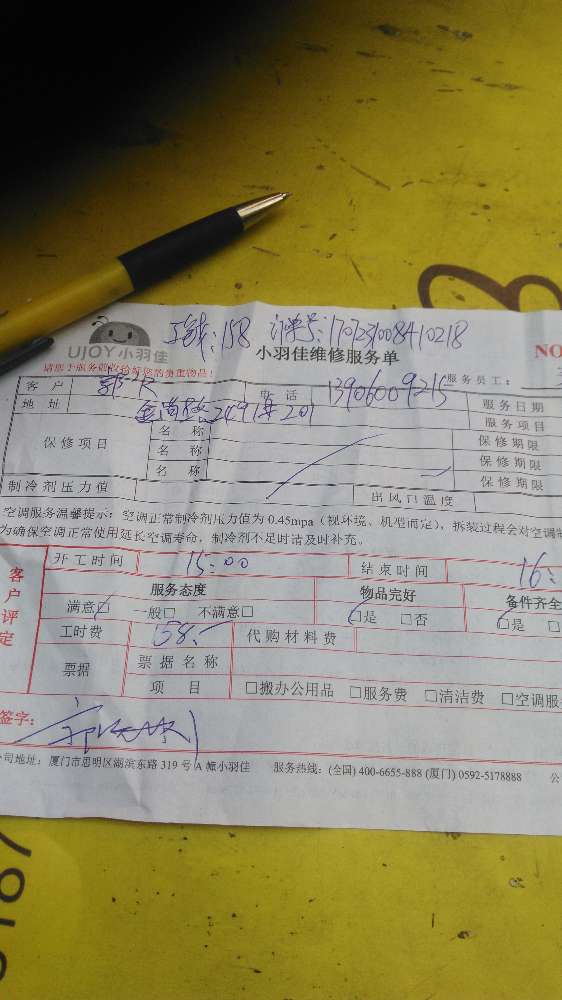 工钱:158 订单号:1707231008410218
UJOY小羽佳
小羽佳维修服务单 NO
请您于服务前收好您的贵重物品!
服务员工:
客户 电话 13906009215 服务日期
地址 249 201 服务项目
保修项目 名称 保修期限
名称 保修期限
名称 保修期限
制冷剂压力值 出风口温度
空调服务温馨提示:空调正常制冷剂压力值为 0.45mpa(视环境、机型而定),拆装过程会对空调制
为确保空调正常使用延长空调寿命,制冷剂不足时请及时补充。
客户评定
开工时间 15:00 结束时间 16:
服务态度 物品完好 备件齐全
满意□ 一般□ 不满意□ □是 □否 □是 □
工时费 158.- 代购材料费
票据 票据名称
项目 □搬办公用品 □服务费 □清洁费 □空调服
签字:
公司地址:厦门市思明区湖滨东路 319 号 A 幢小羽佳 服务热线:(全国) 400-6655-888 (厦门) 0592-5178888 公